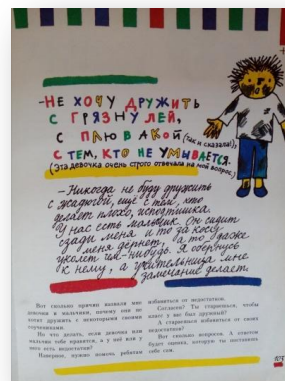 -НЕ ХОЧУ ДРУЖИТЬ
С ГРЯЗНУЛЕЙ,
С ПЛЮВАКОЙ (так и сказала!),
С ТЕМ, КТО НЕ УМЫВАЕТСЯ.
(Эта девочка очень строго отвечала на мой вопрос.)
-Никогда не буду дружить
с жадюгой, ещё с тем, кто
делает плохо, исподтишка.
У нас есть мальчик. Он сидит
сзади меня и то за косу
меня дёрнет, а то даже
уколет чем-нибудь. Я обернусь
к нему, а учительница мне
замечание делает.
Вот сколько причин назвали мне
девочки и мальчики, почему они не
хотят дружить с некоторыми своими
соучениками.
Но что делать, если девочка или
мальчик тебе нравится, а у неё или у
него есть недостаток?
Наверное, нужно помочь ребятам
избавиться от недостатков.
Согласен? Ты стараешься, чтобы
класс у вас был дружный?
А стараешься избавиться от своих
недостатков?
Вот сколько вопросов. А ответом
будет оценка, которую ты поставишь
себе сам.